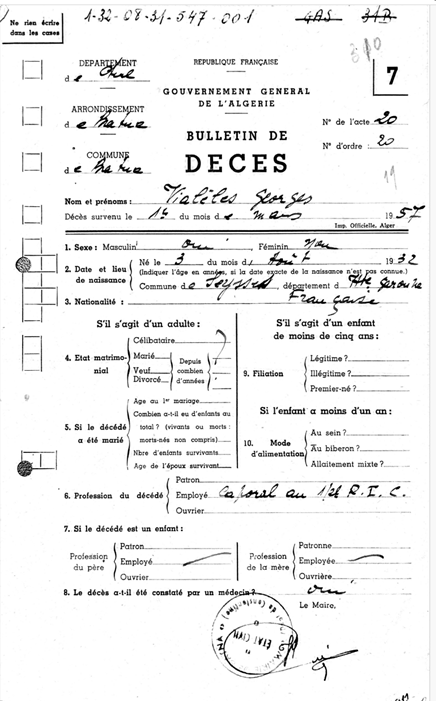 1-32-08-31-547-001
Ne rien écrire
dans les cases
DEPARTEMENT
de
ARRONDISSEMENT
de Batna
COMMUNE
de Batna
REPUBLIQUE FRANÇAISE
GOUVERNEMENT GENERAL
DE L'ALGERIE
BULLETIN DE
DECES
7
N° de l'acte 20
N° d'ordre: 20
19
Nom et prénoms: Vialèles Georges
Décès survenu le 1er du mois de mars 1957
Imp. Officielle, Alger
1. Sexe: Masculin oui, Féminin non
2. Date et lieu de naissance
Né le 3 du mois d août 1932
(Indiquer l'âge en années, si la date exacte de la naissance n'est pas connue.)
Commune de Seysses, département d Hte Garonne
3. Nationalité: Française
S'il s'agit d'un adulte:
4. Etat matrimonial
Célibataire
Marié
Veuf
Divorcé
Depuis
combien
d'années
5. Si le décédé
a été marié
Age au 1er mariage
Combien a-t-il eu d'enfants au
total? (vivants ou morts:
morts-nés non compris)
Nbre d'enfants survivants
Age de l'époux survivant
S'il s'agit d'un enfant
de moins de cinq ans:
9. Filiation
Légitime?
Illégitime?
Premier-né?
Si l'enfant a moins d'un an:
10. Mode
d'alimentation
Au sein?
Au biberon?
Allaitement mixte?
6. Profession du décédé
Patron
Employé Caporal au R.I.C.
Ouvrier
7. Si le décédé est un enfant:
Profession
du père
Patron
Employé
Ouvrier
Profession
de la mère
Patronne
Employée
Ouvrière
8. Le décès a-t-il été constaté par un médecin? oui
Le Maire,
ETAT CIVIL